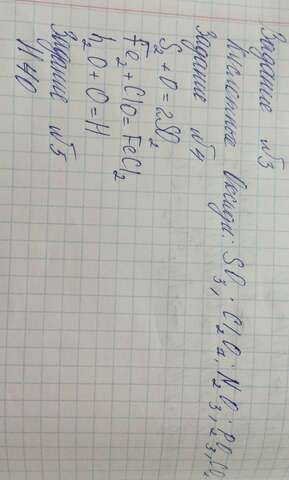 Задание №3
Кислотные Оксиды: SO3; Cl2O7; N2O3; P2O3; CO2
Задание №4
S2 + O = 2SO2
Fe2 + ClO = FeCl2
h2O + O = H
Задание №5
11 40